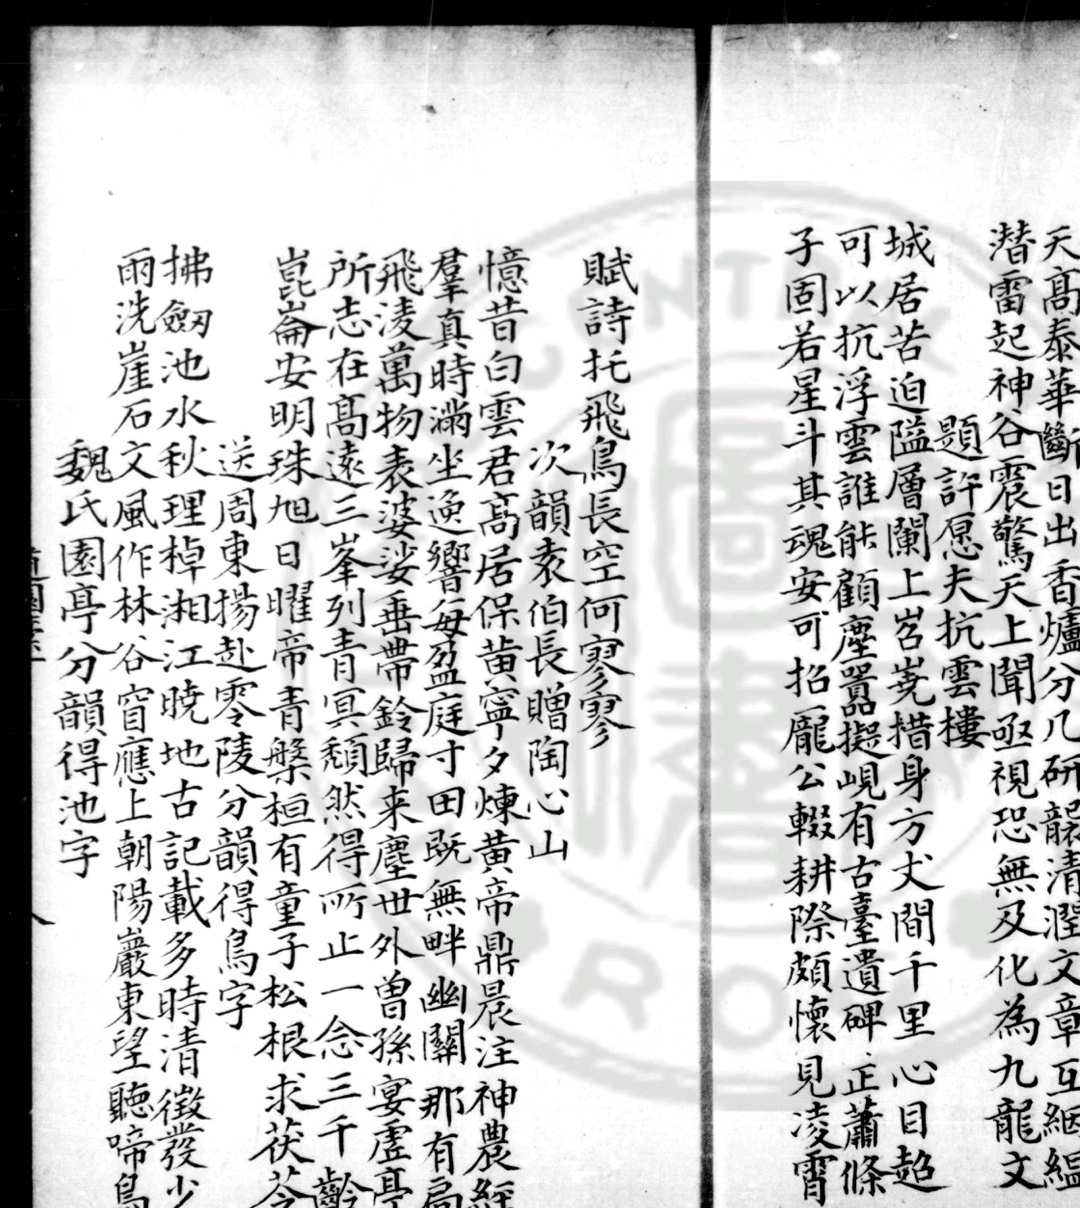 天髙泰華斷日出香爐分几研裛清潤文章互絪縕
潜雷起神谷震驚天上聞亟視恐無及化為九龍文
題許愿夫抗雲樓
城居苦迫隘層闌上岧嶤措身方丈間千里心目超
可以抗浮雲誰能顧塵囂擬峴有古臺遺碑正蕭條
子固若星斗其魂安可招龎公輟耕際頗懷見凌霄
賦詩托飛鳥長空何寥寥
次韻袁伯長贈陶心山
憶昔白雲君髙居保黄寧夕煉黄帝鼎晨注神農經
羣真時滿坐逸響每盈庭寸田既無畔幽關那有扃
飛淩萬物表婆娑垂帶鈴歸来塵世外曽孫宴虛亭
所志在髙逺三峯列青冥頽然得所止一念三千齡
崑崙安明珠旭日曜帝青槃桓有童子松根求茯苓
送周東揚赴零陵分韻得鳥字
拂劔池水秋理棹湘江曉地古記載多時清徵發少
雨洗崖石文風作林谷窅應上朝陽巖東望聽啼鳥
魏氏園亭分韻得池字
八